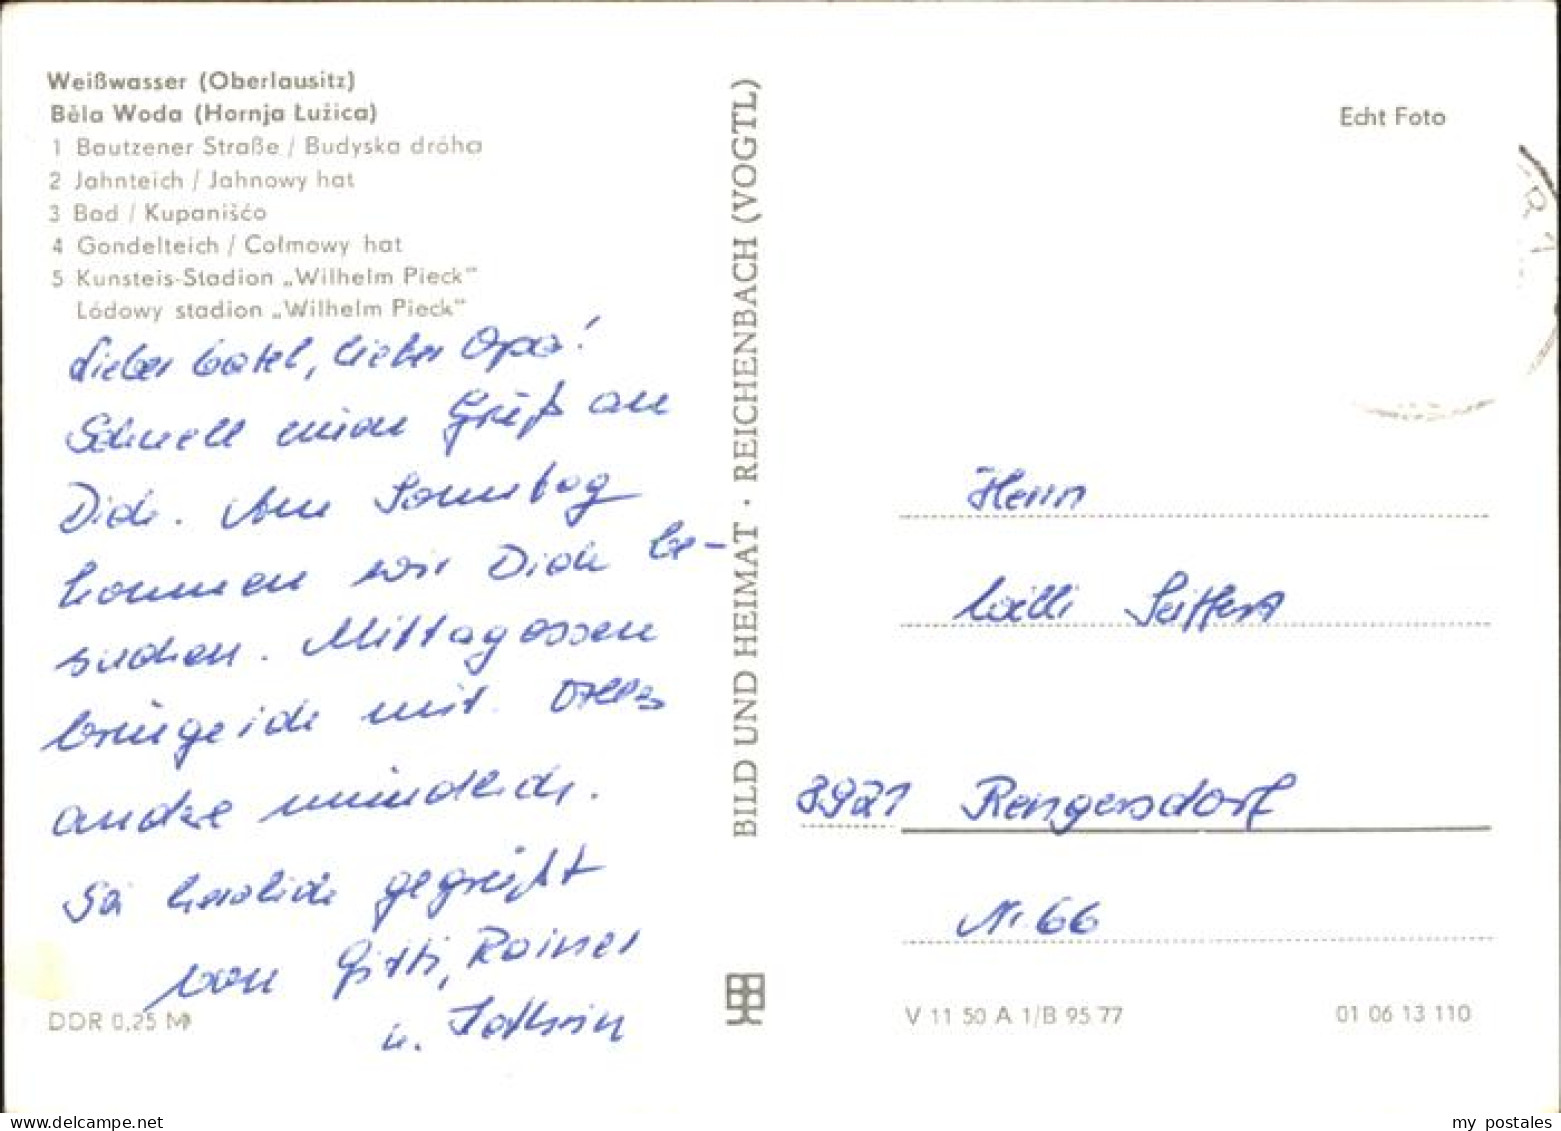 Weißwasser (Oberlausitz)
Běla Woda (Hornja Łužica)
1 Bautzener Straße / Budyska dróha
2 Jahnteich / Jahnowy hat
3 Bad / Kupanišćo
4 Gondelteich / Čołmowy hat
5 Kunsteis-Stadion „Wilhelm Pieck“
Lódowy stadion „Wilhelm Pieck“
Lieber Vatel, lieber Opa!
Schnell einen Gruß an
Dich. Am Sonntag
kommen wir Dich be-
suchen. Mittagessen
bringe ich mit. Alles
andre mündlich.
Sei herzlich gegrüßt
von Gitti, Rainer
u. Kathrin
DDR 0,25 M
BILD UND HEIMAT · REICHENBACH (VOGTL)
Echt Foto
Herrn
Willi Seiffert
8921 Rengersdorf
Nr. 66
V 11 50 A 1/B 95 77
01 06 13 110
my postales